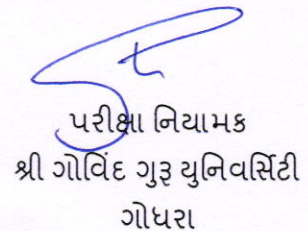 પરીક્ષા નિયામક
શ્રી ગોવિંદ ગુરૂ યુનિવર્સિટી
ગોધરા